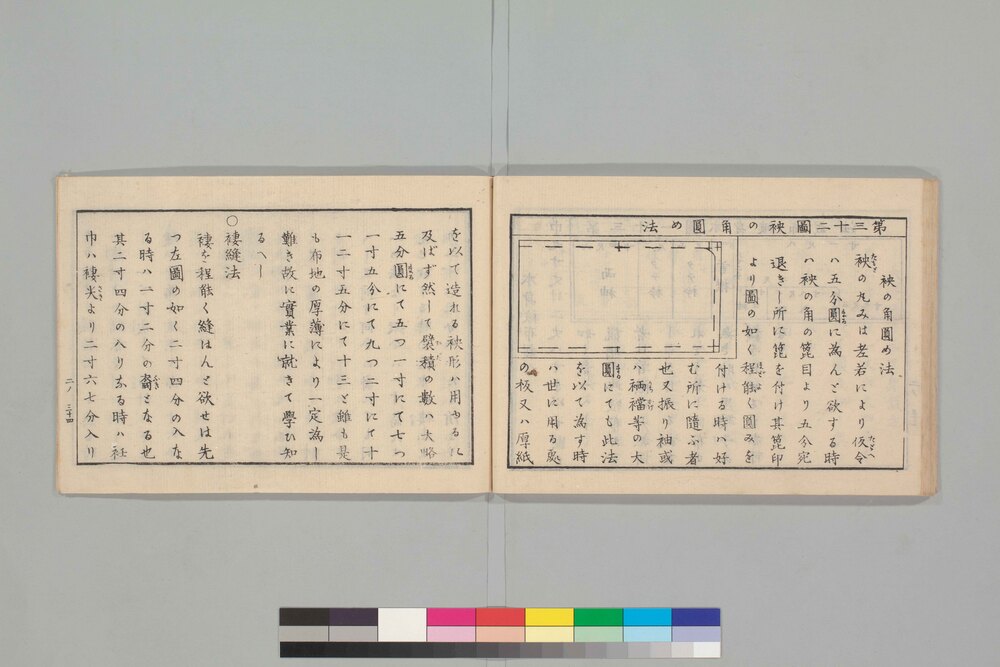 第三十二圖袂の角圓め法
袂の角圓め法
袂の丸みは老若により仮令
ハ五分圓に為んと欲する時
ハ袂の角の箆目より五分宛
退きし所に箆を付け其箆印
より圖の如く程能く圓みを
付ける時ハ好
む所に隨ふ者
也又振り袖或
ハ裲襠等の大
圓にても此法
を以て為す時
ハ世に用る處
の板又ハ厚紙
を以て造れる袂形ハ用ゆるに
及ばず然して襞積の數ハ大略
五分圓にて五つ一寸にて七つ
一寸五分にて九つ二寸にて十
一二寸五分にて十三と雖も是
も布地の厚薄により一定為し
難き故に實業に就きて學ひ知
るへし
○
褄縫法
褄を程能く縫はんと欲せは先
つ左圖の如く二寸四分の入な
る時ハ二寸二分の裔となる也
其二寸四分の入りなる時ハ衽
巾ハ褄先より二寸六七分入り
二ノ三十四